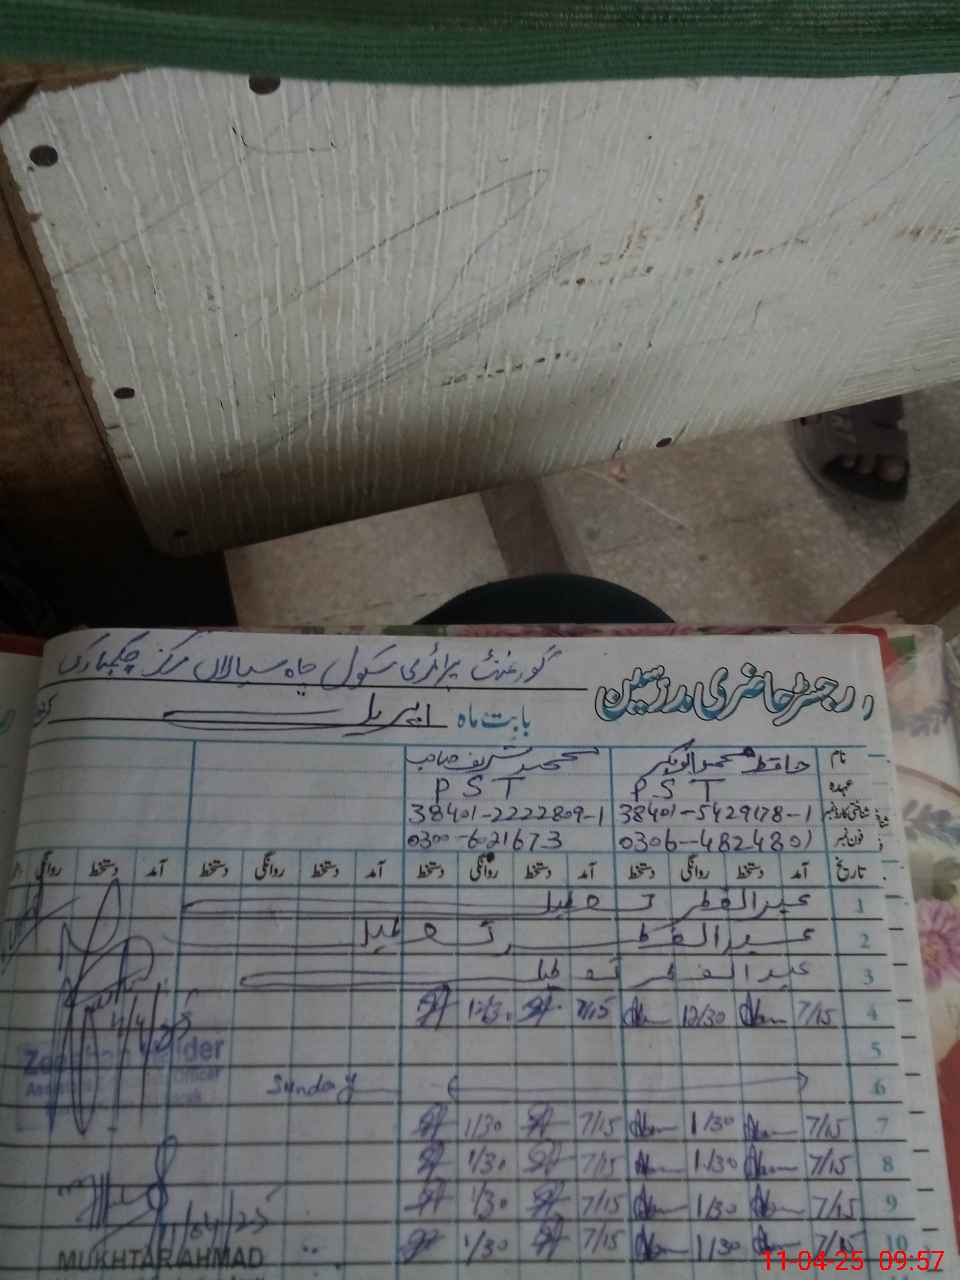 گورنمنٹ پرائمری سکول چاہ سیالاں مرکز
رجسٹر حاضری مدرسین
بابت ماہ اپریل
نام حافظ محمد ابوبکر محمد شریف صاحب
عہدہ PST PST
شناختی کارڈ نمبر 38401-5429178-1 38401-2222809-1
فون نمبر 0306-4824801 0300-6021673
تاریخ آمد دستخط روانگی دستخط آمد دستخط روانگی دستخط آمد دستخط روانگی دستخط آمد دستخط روانگی
1 عید الفطر تعطیل
2 عید الفطر تعطیل
3 عید الفطر تعطیل
4 7/15 12/30 7/15 12/30
5
6 Sunday
7 7/15 1/30 7/15 1/30
8 7/15 1/30 7/15 1/30
9 7/15 1/30 7/15 1/30
10 7/15 1/30 7/15 1/30
MUKHTAR AHMAD
11-04-25 09:57